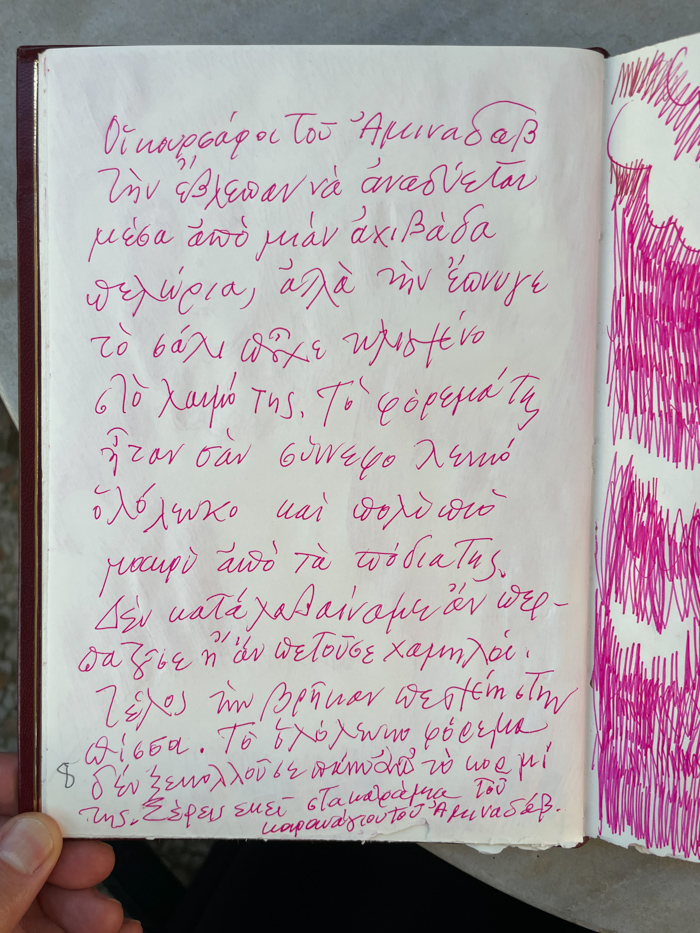 Οἱ κουρσάροι τοῦ Ἀμιναδάβ
τὴν ἔβλεπαν νὰ ἀναδύεται
μέσα ἀπὸ μιάν ἀχιβάδα
πελώρια, ἀλλὰ τὴν ἔπνιγε
τὸ σάλι ποὖχε τυλιγμένο
στὸ λαιμό της. Τὸ φόρεμά της
ἦταν σὰν σύννεφο λευκό
ὁλόλευκο καὶ πολὺ πιὸ
μακρὺ ἀπὸ τὰ πόδια της.
Δὲν καταλαβαίναμε ἂν περ-
πατοῦσε ἢ ἂν πετοῦσε χαμηλά.
Τέλος τὴν βρῆκαν πεσμένη στὴν
πίσσα. Τὸ ὁλόλευκο φόρεμα
δὲν ξεκολλοῦσε πάνω ἀπὸ τὸ κορμί
της. Ξέρεις ἐκεῖ στὰ τοῦ
καρνάγιου τοῦ Ἀμιναδάβ.
8